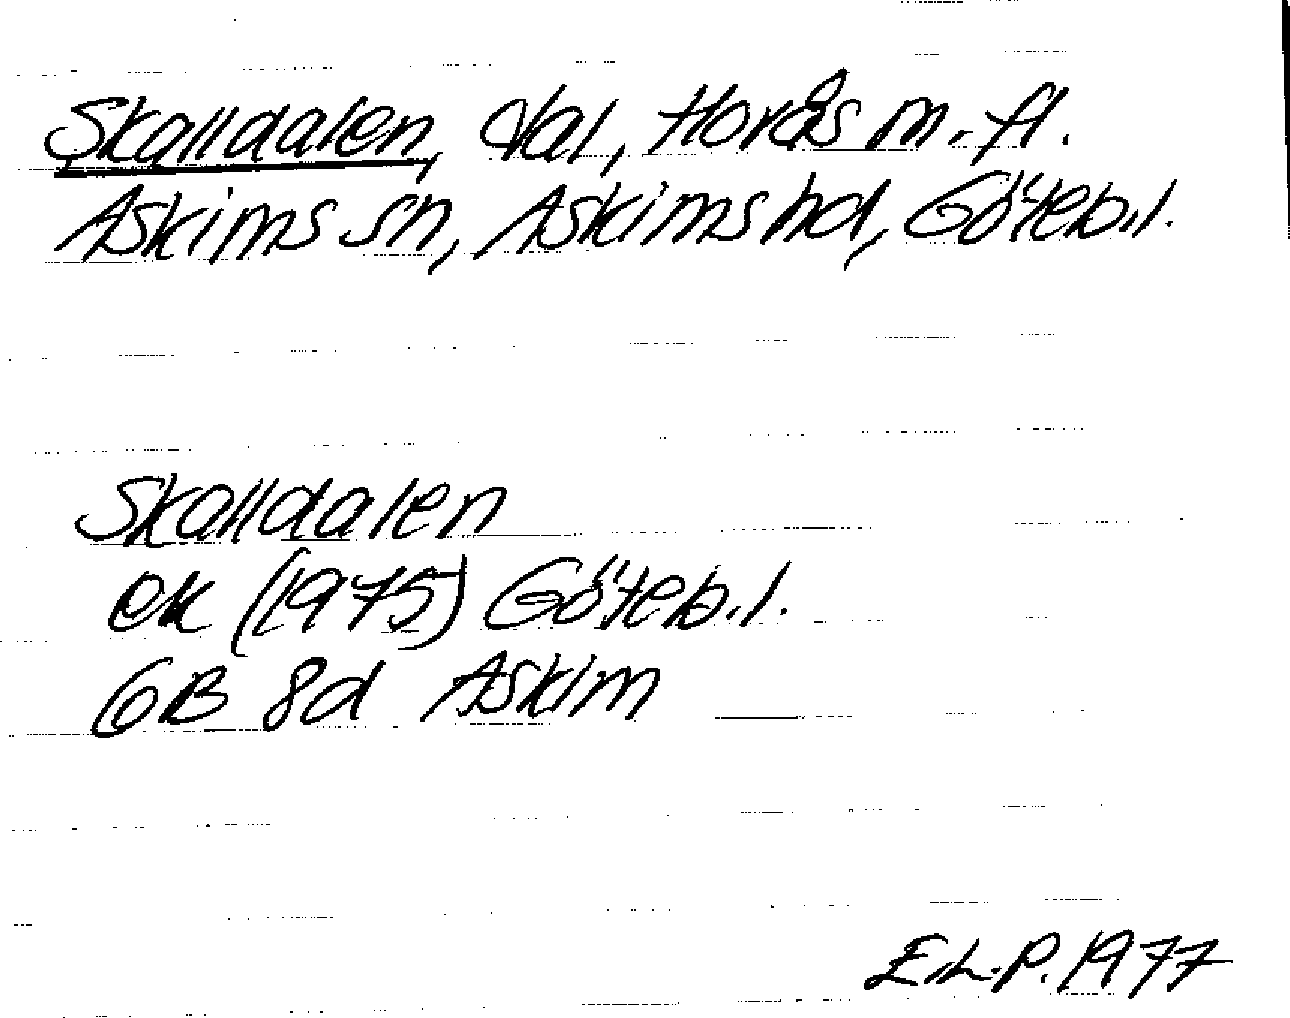 Skalldalen, dal, Hovås m.fl.
Askims sn, Askims hd, Göteb.l.
Skalldalen
ek (1975) Göteb.l.
6B 8d Askim
E.L.P. 1977